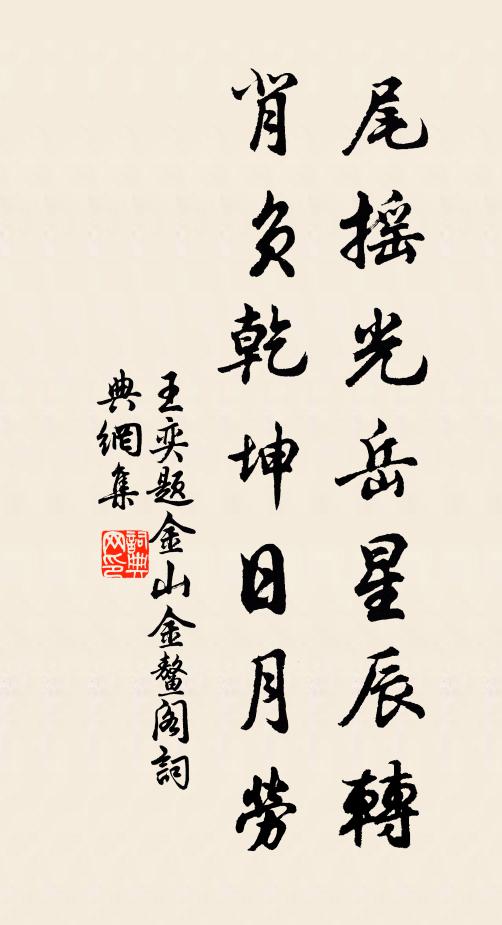 尾摇光岳星辰轉
背负乾坤日月勞
王奕题金山金鳌阁詞
典網集
詞典
网印